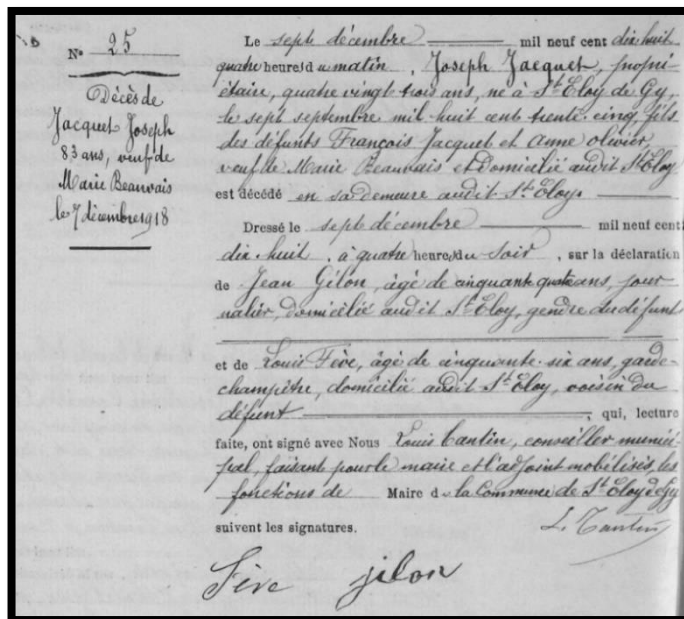 N° 25
Décès de
Jacquet Joseph
83 ans, veuf de
Marie Beauvais
le 7 décembre 1918
Le sept décembre mil neuf cent dix huit
quatre heures du matin, Joseph Jacquet, propri-
étaire, quatre vingt trois ans, né à St Eloy de Gy,
le sept septembre mil huit cent trente cinq, fils
des défunts François Jacquet et Anne Olivier
veuf de Marie Beauvais et Domicilié audit St Eloy
est décédé en sa demeure audit St Eloy.
Dressé le sept décembre mil neuf cent
dix huit, à quatre heures du soir, sur la déclaration
de Jean Gilon, âgé de cinquante quatre ans, jour-
nalier, domicilié audit St Eloy, gendre du défunt
et de Louis Fève, âgé de cinquante-six ans, garde-
champêtre, domicilié audit St Eloy, voisin du
défunt, qui, lecture
faite, ont signé avec Nous Louis Cantin, conseiller munici-
pal, faisant pour le maire et l'adjoint mobilisés, les
fonctions de Maire de la Commune de St Eloy de Gy
suivent les signatures. L. Cantin
Fève Jilon